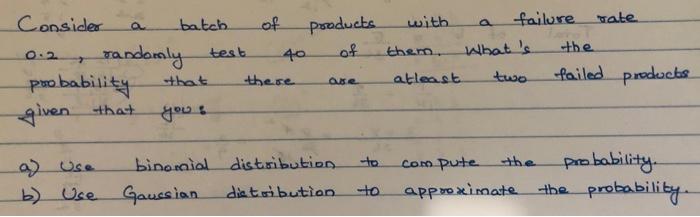 Consider a batch of products with a failure rate
0.2, randomly test 40 of them. What's the
probability that there are atleast two failed products
given that you:
a) Use binomial distribution to compute the probability.
b) Use Gaussian distribution to approximate the probability.